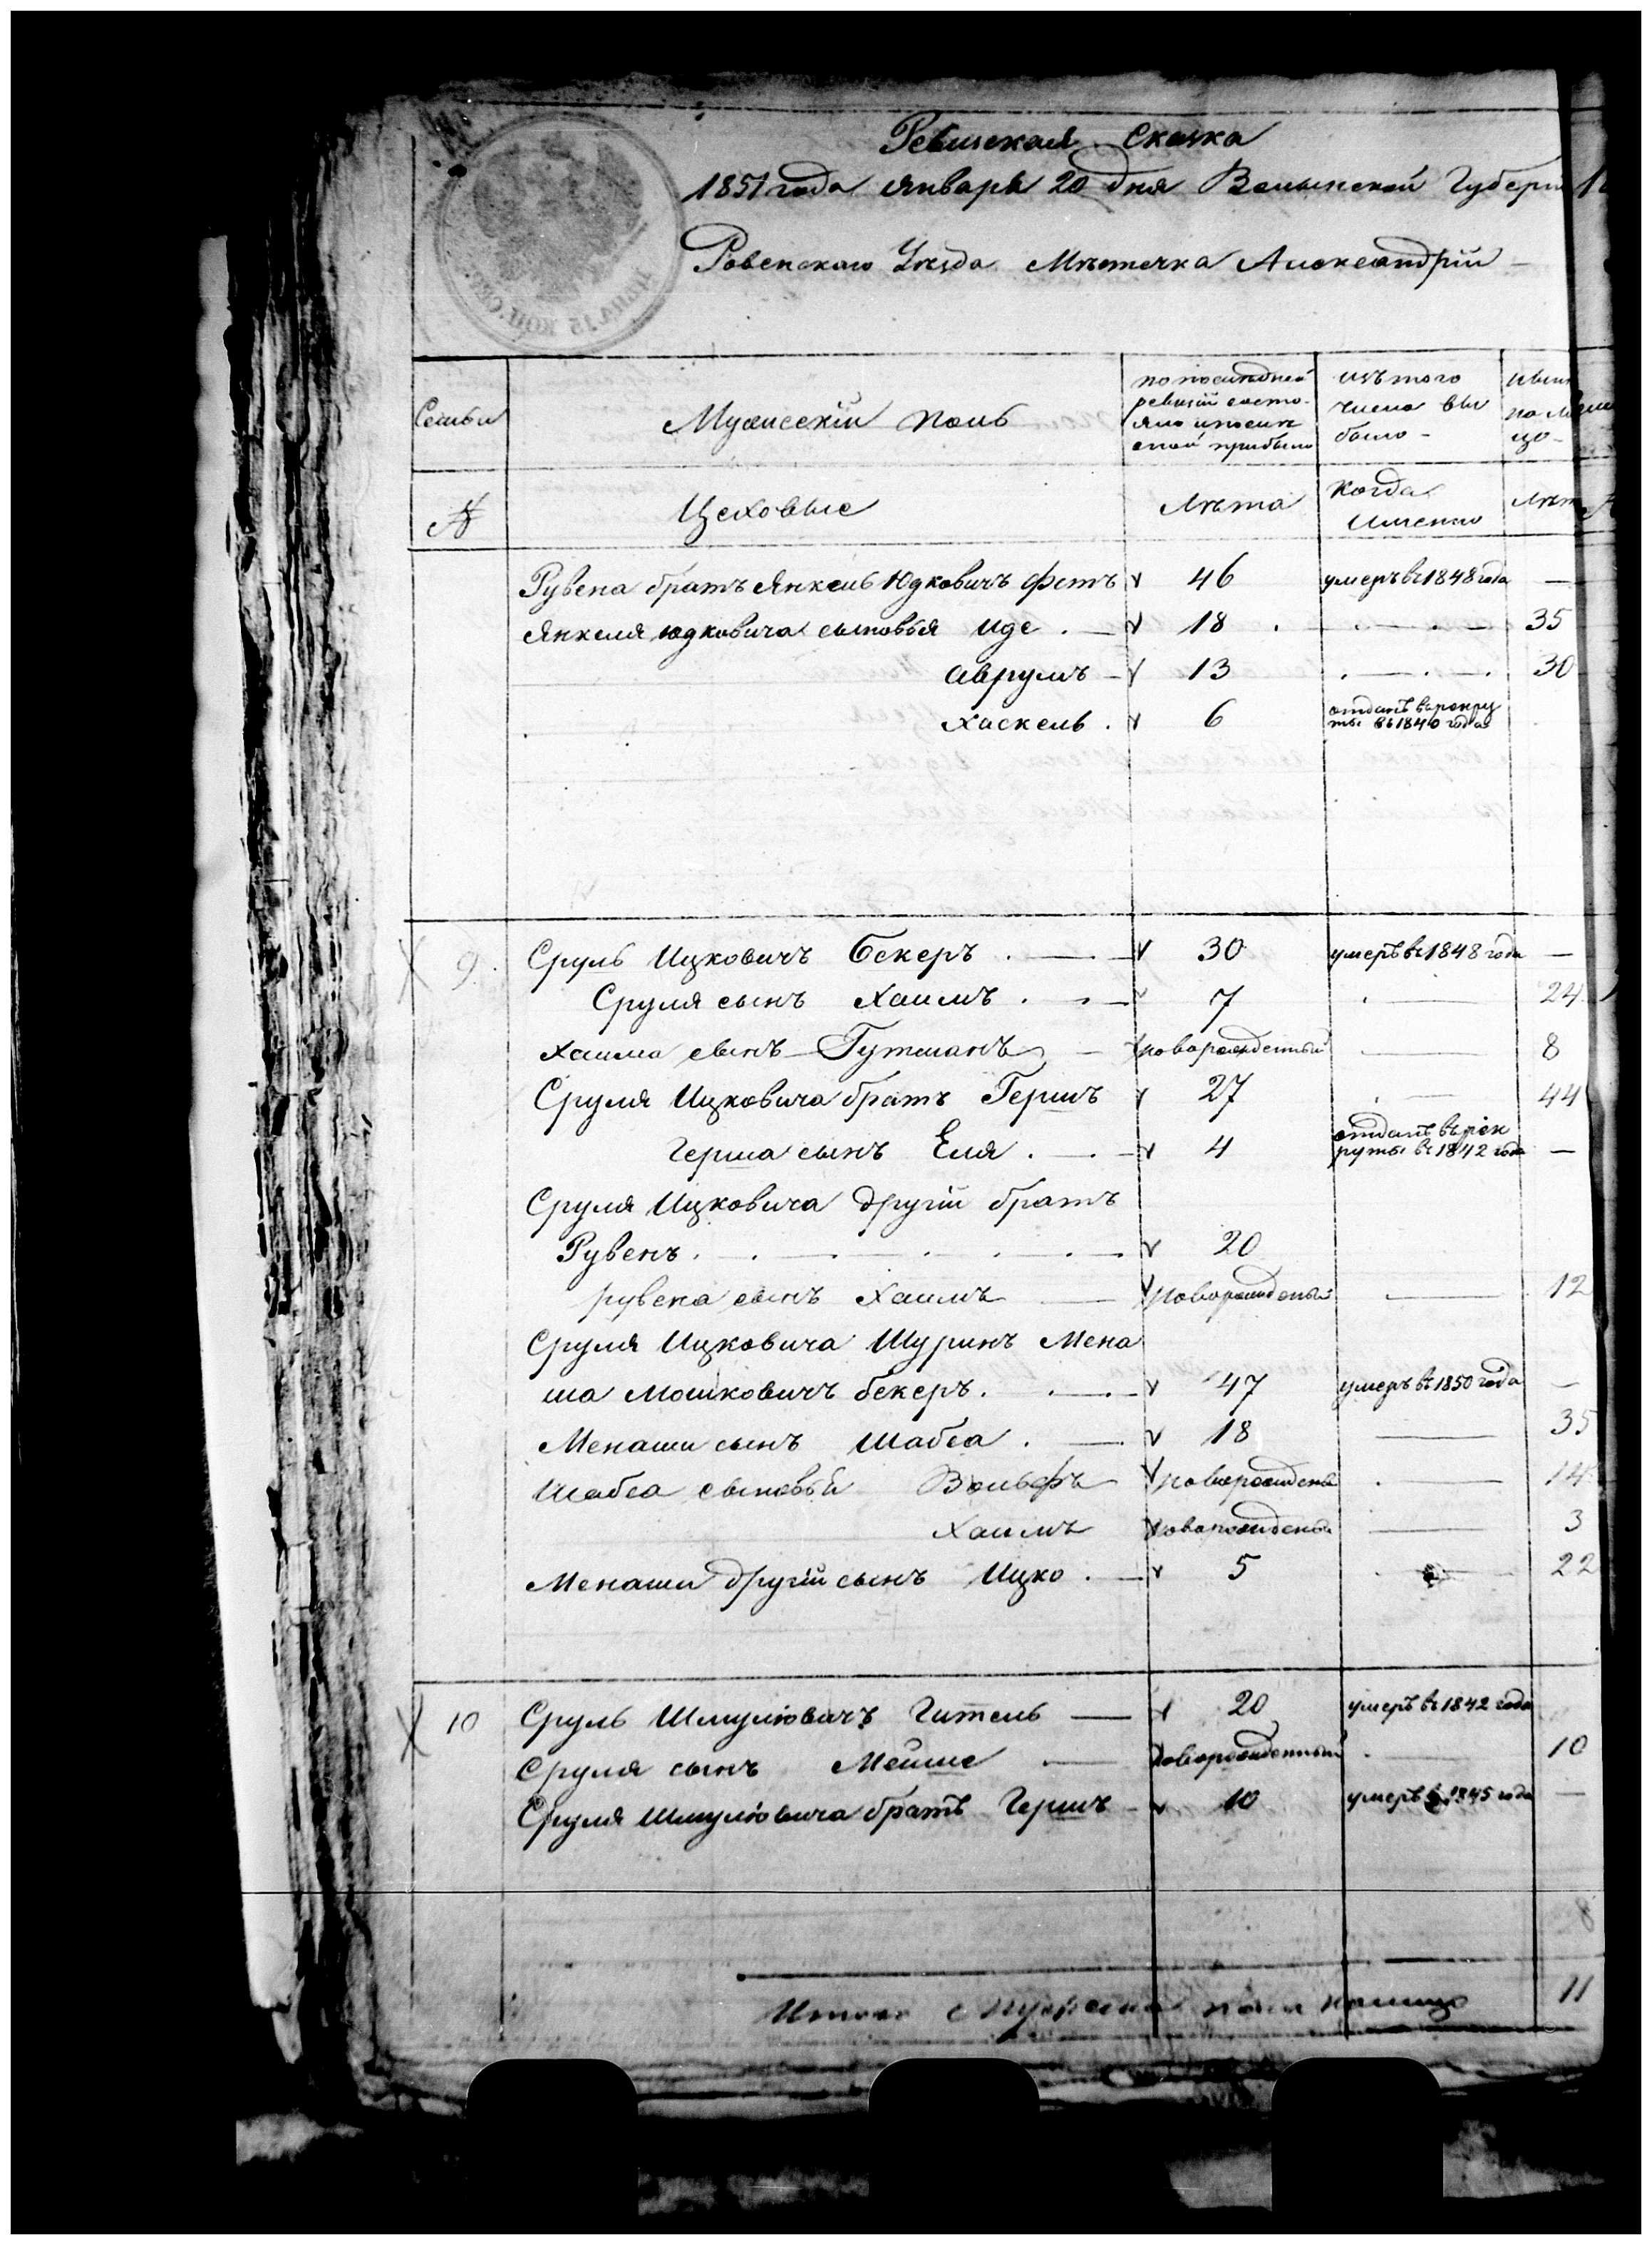 Ревизская Сказка
1851 года Января 20 дня Волынской Губерн
Ровенскаго Уезда Местечка Александрiи
Семьи
Мужескiй полъ
по последней ревизiи состояло и после оной прибыло
изъ того числа выбыло
ныне на лицо
№
Цеховые
Лета
когда Именно
Лета
Рувена братъ Янкель Юдковичъ Фетъ 46 умеръ въ 1848 года —
Янкеля Юдковича сыновья Иде 18 — 35
Аврумъ 13 — 30
Хаскель 6 отданъ в рекруты въ 1840 года
9 Сруль Ицковичъ Бекеръ 30 умеръ въ 1848 года —
Сруля сынъ Хаимъ 7 — 24
Хаима сынъ Гутманъ новорожденный — 8
Сруля Ицковича братъ Гершъ 27 — 44
Герша сынъ Еля 4 отданъ въ рекруты въ 1842 года —
Сруля Ицковича другiй братъ
Рувенъ 20
Рувена сынъ Хаимъ новорожденный — 12
Сруля Ицковича Шуринъ Мена
ша Мошковичъ Бекеръ 47 умеръ въ 1850 года —
Менаши сынъ Шабса 18 — 35
Шабса сыновья Вольфъ новорожденный — 14
Хаимъ новорожденный — 3
Менаши другiй сынъ Ицко 5 — 22
10 Сруль Шмулiовичъ Гитель 20 умеръ въ 1842 года
Сруля сынъ Мейше новорожденный — 10
Сруля Шмулiовича братъ Гершъ 10 умеръ въ 1845 года —
8
Итого Мужеска пола налицо 11